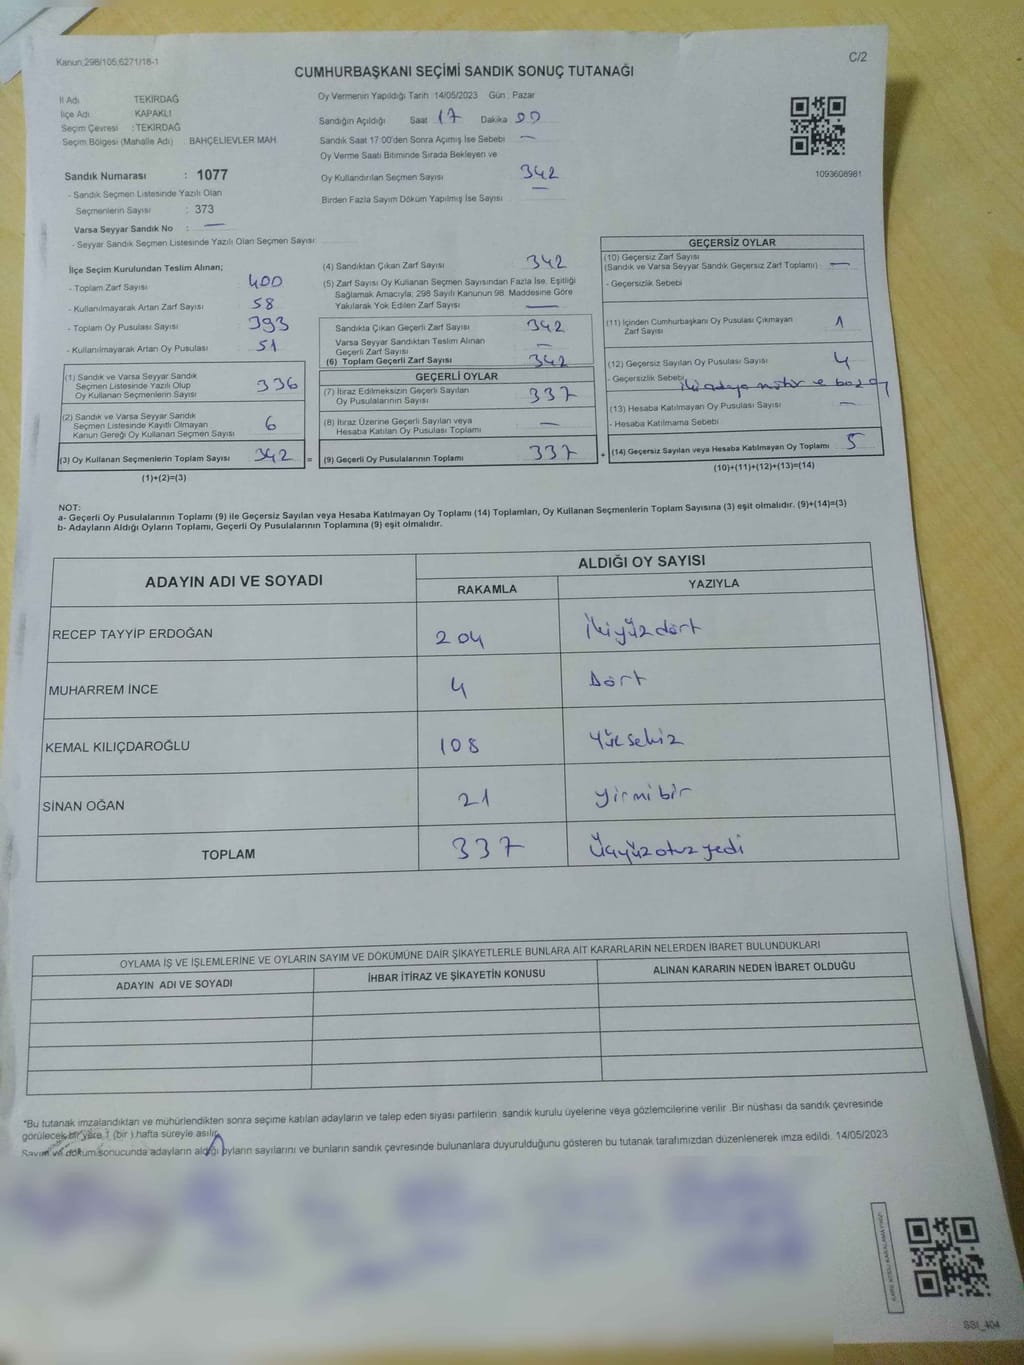 Kanun;298/105,6271/18-1
C/2
CUMHURBAŞKANI SEÇİMİ SANDIK SONUÇ TUTANAĞI
İl Adı TEKİRDAĞ
İlçe Adı KAPAKLI
Seçim Çevresi : TEKİRDAĞ
Seçim Bölgesi (Mahalle Adı) BAHÇELİEVLER MAH
Sandık Numarası : 1077
- Sandık Seçmen Listesinde Yazılı Olan
Seçmenlerin Sayısı : 373
Varsa Seyyar Sandık No : —
- Seyyar Sandık Seçmen Listesinde Yazılı Olan Seçmen Sayısı:
Oy Vermenin Yapıldığı Tarih :14/05/2023 Gün : Pazar
Sandığın Açıldığı Saat 17 Dakika 00
Sandık Saat 17.00'den Sonra Açımış İse Sebebi —
Oy Verme Saati Bitiminde Sırada Bekleyen ve
Oy Kullandırılan Seçmen Sayısı 342
Birden Fazla Sayım Döküm Yapılmış İse Sayısı —
1093608981
İlçe Seçim Kurulundan Teslim Alınan;
- Toplam Zarf Sayısı 400
- Kullanılmayarak Artan Zarf Sayısı 58
- Toplam Oy Pusulası Sayısı 393
- Kullanılmayarak Artan Oy Pusulası 51
(1) Sandık ve Varsa Seyyar Sandık
Seçmen Listesinde Yazılı Olup
Oy Kullanan Seçmenlerin Sayısı 336
(2) Sandık ve Varsa Seyyar Sandık
Seçmen Listesinde Kayıtlı Olmayan
Kanun Gereği Oy Kullanan Seçmen Sayısı 6
(3) Oy Kullanan Seçmenlerin Toplam Sayısı 342 =
(1)+(2)=(3)
(4) Sandıktan Çıkan Zarf Sayısı 342
(5) Zarf Sayısı Oy Kullanan Seçmen Sayısından Fazla İse, Eşitliği
Sağlamak Amacıyla, 298 Sayılı Kanunun 98. Maddesine Göre
Yakılarak Yok Edilen Zarf Sayısı —
Sandıkta Çıkan Geçerli Zarf Sayısı 342
Varsa Seyyar Sandıktan Teslim Alınan
Geçerli Zarf Sayısı —
(6) Toplam Geçerli Zarf Sayısı 342
GEÇERLİ OYLAR
(7) İtiraz Edilmeksizin Geçerli Sayılan
Oy Pusulalarının Sayısı 337
(8) İtiraz Üzerine Geçerli Sayılan veya
Hesaba Katılan Oy Pusulası Toplamı —
(9) Geçerli Oy Pusulalarının Toplamı 337 +
GEÇERSİZ OYLAR
(10) Geçersiz Zarf Sayısı
(Sandık ve Varsa Seyyar Sandık Geçersiz Zarf Toplamı) —
- Geçersizlik Sebebi
(11) İçinden Cumhurbaşkanı Oy Pusulası Çıkmayan
Zarf Sayısı 1
(12) Geçersiz Sayılan Oy Pusulası Sayısı 4
- Geçersizlik Sebebi
(13) Hesaba Katılmayan Oy Pusulası Sayısı —
- Hesaba Katılmama Sebebi
(14) Geçersiz Sayılan veya Hesaba Katılmayan Oy Toplamı 5
(10)+(11)+(12)+(13)=(14)
NOT:
a- Geçerli Oy Pusulalarının Toplamı (9) ile Geçersiz Sayılan veya Hesaba Katılmayan Oy Toplamı (14) Toplamları, Oy Kullanan Seçmenlerin Toplam Sayısına (3) eşit olmalıdır. (9)+(14)=(3)
b- Adayların Aldığı Oyların Toplamı, Geçerli Oy Pusulalarının Toplamına (9) eşit olmalıdır.
ADAYIN ADI VE SOYADI
ALDIĞI OY SAYISI
RAKAMLA YAZIYLA
RECEP TAYYİP ERDOĞAN 204 ikiyüzdört
MUHARREM İNCE 4 Dört
KEMAL KILIÇDAROĞLU 108 Yüzsekiz
SİNAN OĞAN 21 yirmibir
TOPLAM 337 Üçyüzotuzyedi
OYLAMA İŞ VE İŞLEMLERİNE VE OYLARIN SAYIM VE DÖKÜMÜNE DAİR ŞİKAYETLERLE BUNLARA AİT KARARLARIN NELERDEN İBARET BULUNDUKLARI
ADAYIN ADI VE SOYADI İHBAR İTİRAZ VE ŞİKAYETİN KONUSU ALINAN KARARIN NEDEN İBARET OLDUĞU
*Bu tutanak imzalandıktan ve mühürlendikten sonra seçime katılan adayların ve talep eden siyasi partilerin sandık kurulu üyelerine veya gözlemcilerine verilir. Bir nüshası da sandık çevresinde
görülecek bir yere 1 (bir) hafta süreyle asılır.
Sayım ve döküm sonucunda adayların aldığı oyların sayılarını ve bunların sandık çevresinde bulunanlara duyurulduğunu gösteren bu tutanak tarafımızdan düzenlenerek imza edildi. 14/05/2023
SSI_404